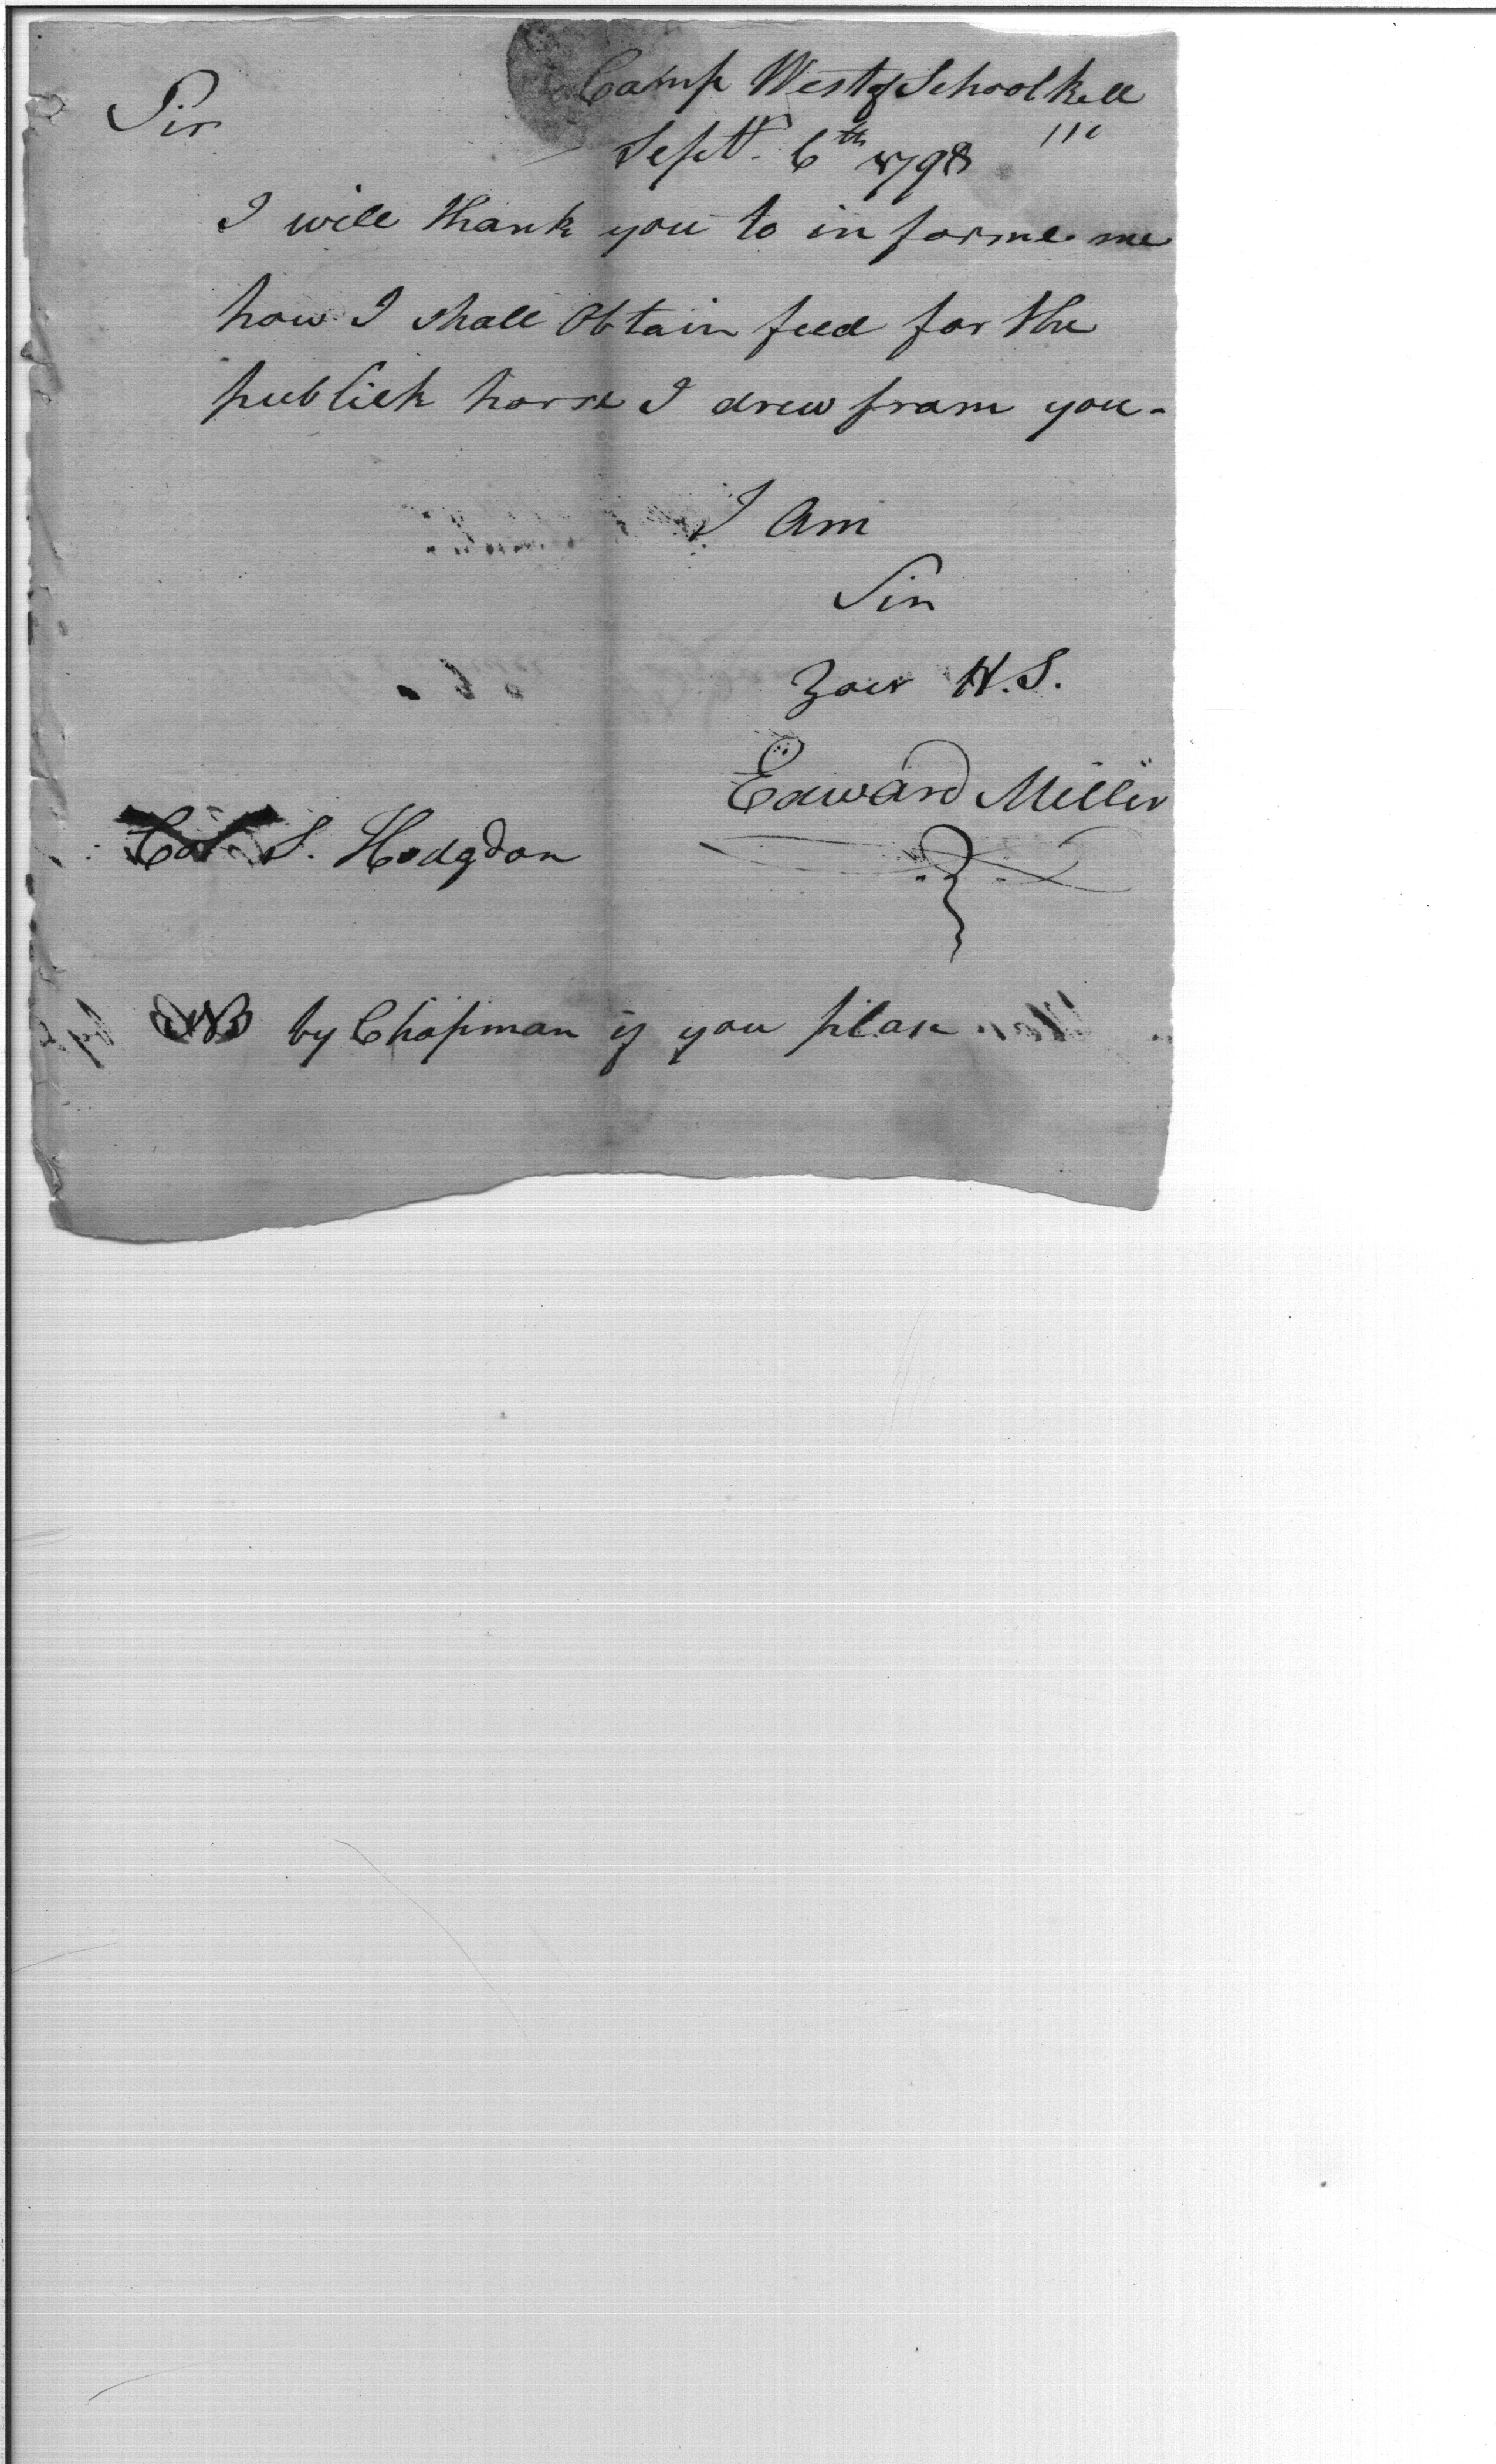 Camp West of Schoolkell
Sir
Sept. 6th 1798
I will thank you to informe me
how I shall Obtain feed for the
publick horse I drew from you -
I Am
Sir
Your H. S.
Edward Miller
Col. S. Hodgdon
NB by Chapman if you pleas